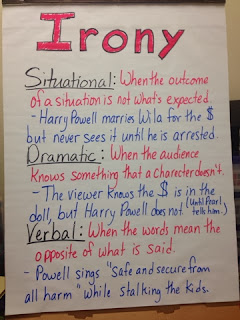 Irony
Situational: When the outcome
of a situation is not what's expected.
- Harry Powell marries Willa for the $
but never sees it until he is arrested.
Dramatic: When the audience
knows something that a charecter doesn't.
- The viewer knows the $ is in the
doll, but Harry Powell does not. (Until Pearl
tells him.)
Verbal: When the words mean the
opposite of what is said.
- Powell sings "safe and secure from
all harm" while stalking the kids.